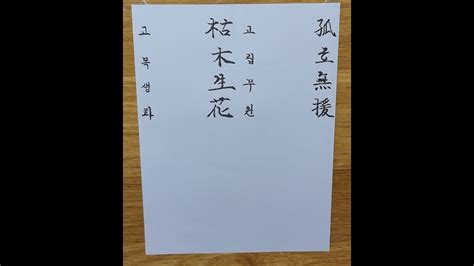 孤立無援
고립무원
枯木生花
고목생화